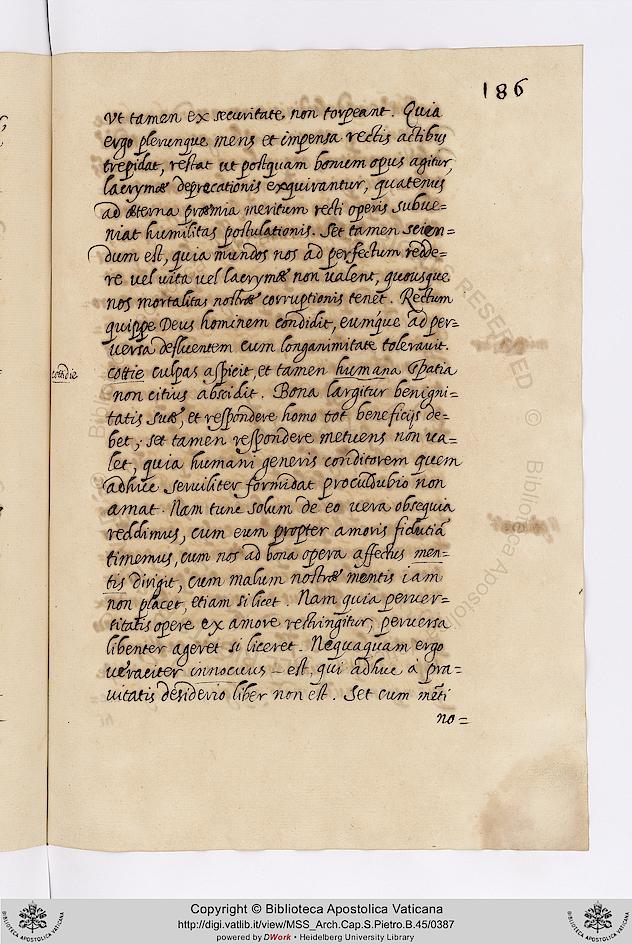 186
Vt tamen ex securitate non torpeant. Quia
ergo plerunque mens et impensa rectis actibus
trepidat, restat ut postquam bonum opus agitur,
lacrymæ deprecationis exquirantur, quatenus
ad æterna præmia meritum recti operis subue=
niat humilitas postulationis. Set tamen scien=
dum est, quia mundos nos ad perfectum redde=
re vel vita vel lacrymæ non valent, quousque
nos mortalitas nostræ corruptionis tenet. Rectum
quippe Deus hominem condidit, eumque ad per=
versa defluentem cum longanimitate tolerauit.
cottidie
cottie culpas aspicit, et tamen humana spatia
non citius abscidit. Bona largitur benigni=
tatis suæ, et respondere homo tot beneficijs de=
bet; set tamen respondere metuens non va=
let, quia humani generis conditorem quem
adhuc seruiliter formidat proculdubio non
amat. Nam tunc solum de eo vera obsequia
reddimus, cum eum propter amoris fidutiã
timemus, cum nos ad bona opera affectus men=
tis dirigit, cum malum nostræ mentis iam
non placet, etiam si licet. Nam quia peruer=
titatis opere ex amore restringitur, peruersa
libenter ageret si liceret. Nequaquam ergo
veraciter innocuus est, qui adhuc a pra=
uitatis desiderio liber non est. Set cum mẽti
no=
RESERVED © Biblioteca Apostoli
Copyright © Biblioteca Apostolica Vaticana
http://digi.vatlib.it/view/MSS_Arch.Cap.S.Pietro.B.45/0387
powered by DWork • Heidelberg University Library